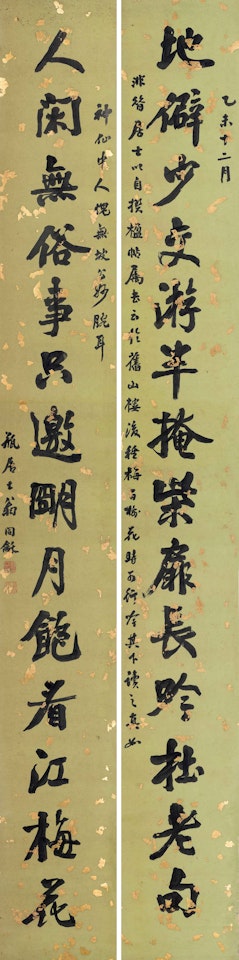 乙未十二月
地僻少交游半掩柴扉長吟杜老句
非昔居士以自撰楹帖屬書云於舊山樓後種梅百樹花時行吟其下讀之真如
神仙中人愧無坡公妙腕耳
人閑無俗事只邀朙月飽看江梅花
瓶居士翁同龢